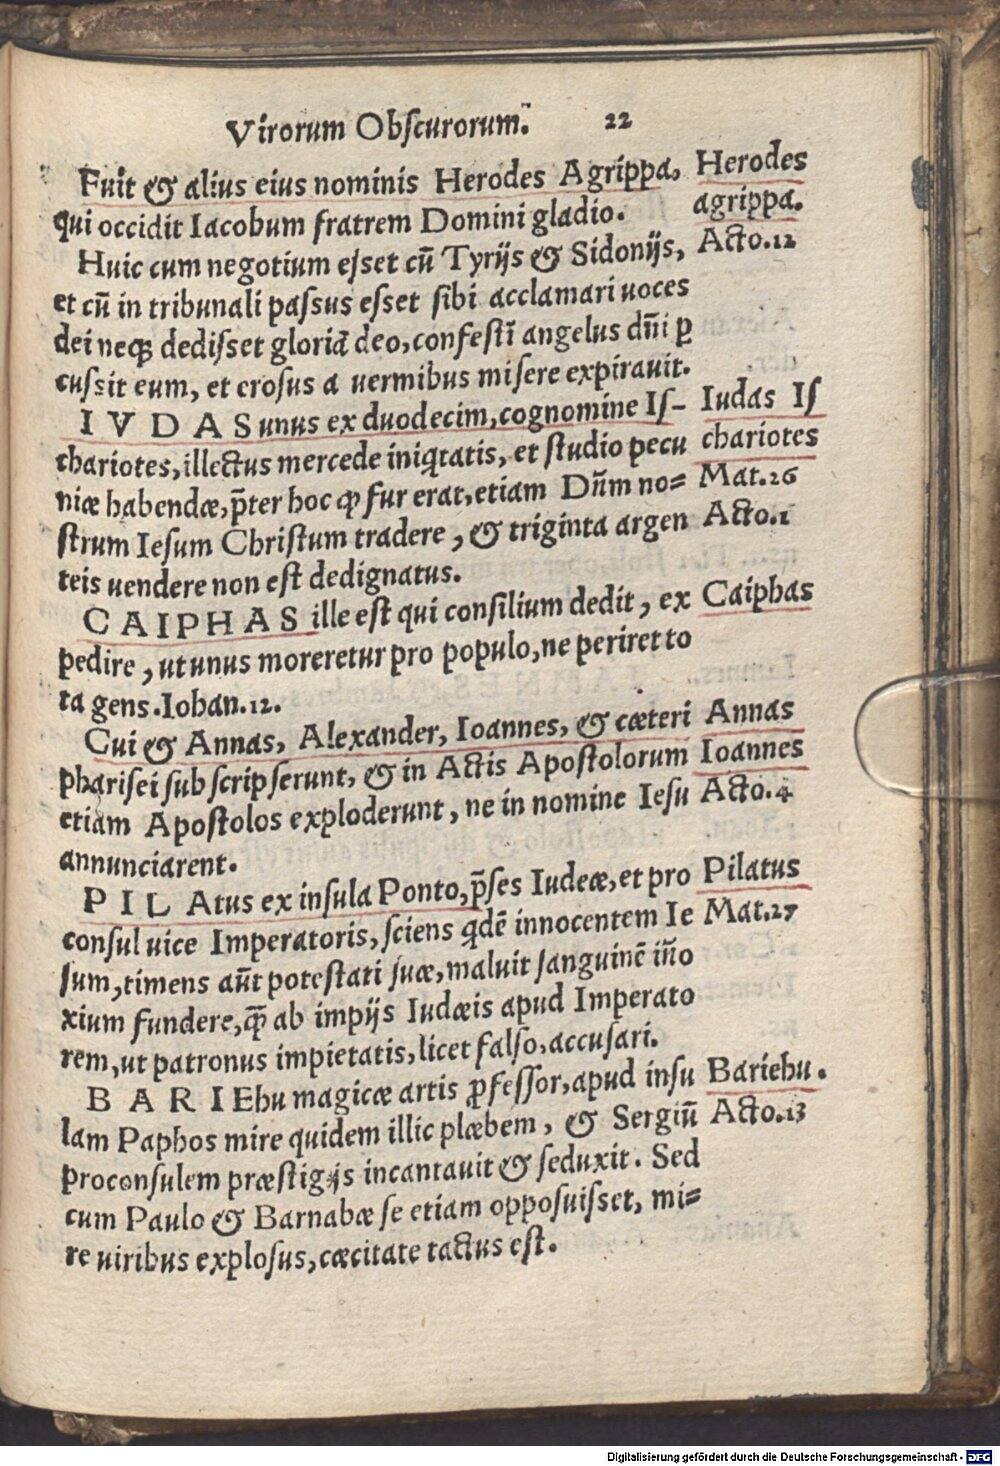 Virorum Obscurorum. 22
Fuit & alius eius nominis Herodes Agrippa, Herodes
qui occidit Iacobum fratrem Domini gladio. agrippa.
Huic cum negotium eſset cū Tyrijs & Sidonijs, Acto.12
et cū in tribunali paſsus eſset ſibi acclamari uoces
dei neqꝫ dediſset gloriā deo, confeſtī angelus dn̄i ꝑ
cuſsit eum, et eroſus a uermibus miſere expirauit.
I V D A S unus ex duodecim, cognomine Iſ- Iudas Iſ
chariotes, illectus mercede iniqtatis, et ſtudio pecu chariotes
niæ habendæ, p̄ter hoc ꝙ fur erat, etiam Dn̄m no= Mat.26
ſtrum Ieſum Chriſtum tradere, & triginta argen Acto.1
teis uendere non eſt dedignatus.
C A I P H A S ille eſt qui conſilium dedit, ex Caiphas
pedire, ut unus moreretur pro populo, ne periret to
ta gens. Iohan.12.
Cui & Annas, Alexander, Ioannes, & cæteri Annas
phariſei ſubſcripſerunt, & in Actis Apoſtolorum Ioannes
etiam Apoſtolos exploderunt, ne in nomine Ieſu Acto.4
annunciarent.
P I L Atus ex inſula Ponto, p̄ſes Iudeæ, et pro Pilatus
conſul uice Imperatoris, ſciens qdē innocentem Ie Mat.27
ſum, timens aūt poteſtati ſuæ, maluit ſanguinē in̄o
xium fundere, q̄ ab impijs Iudæis apud Imperato
rem, ut patronus impietatis, licet falſo, accuſari.
B A R I Ehu magicæ artis ꝓfeſſor, apud inſu Bariehu.
lam Paphos mire quidem illic plæbem, & Sergiū Acto.13
proconſulem præſtigijs incantauit & ſeduxit. Sed
cum Paulo & Barnabæ ſe etiam oppoſuiſset, mi=
re uiribus exploſus, cæcitate tactus eſt.
Digitalisierung gefördert durch die Deutsche Forschungsgemeinschaft - DFG